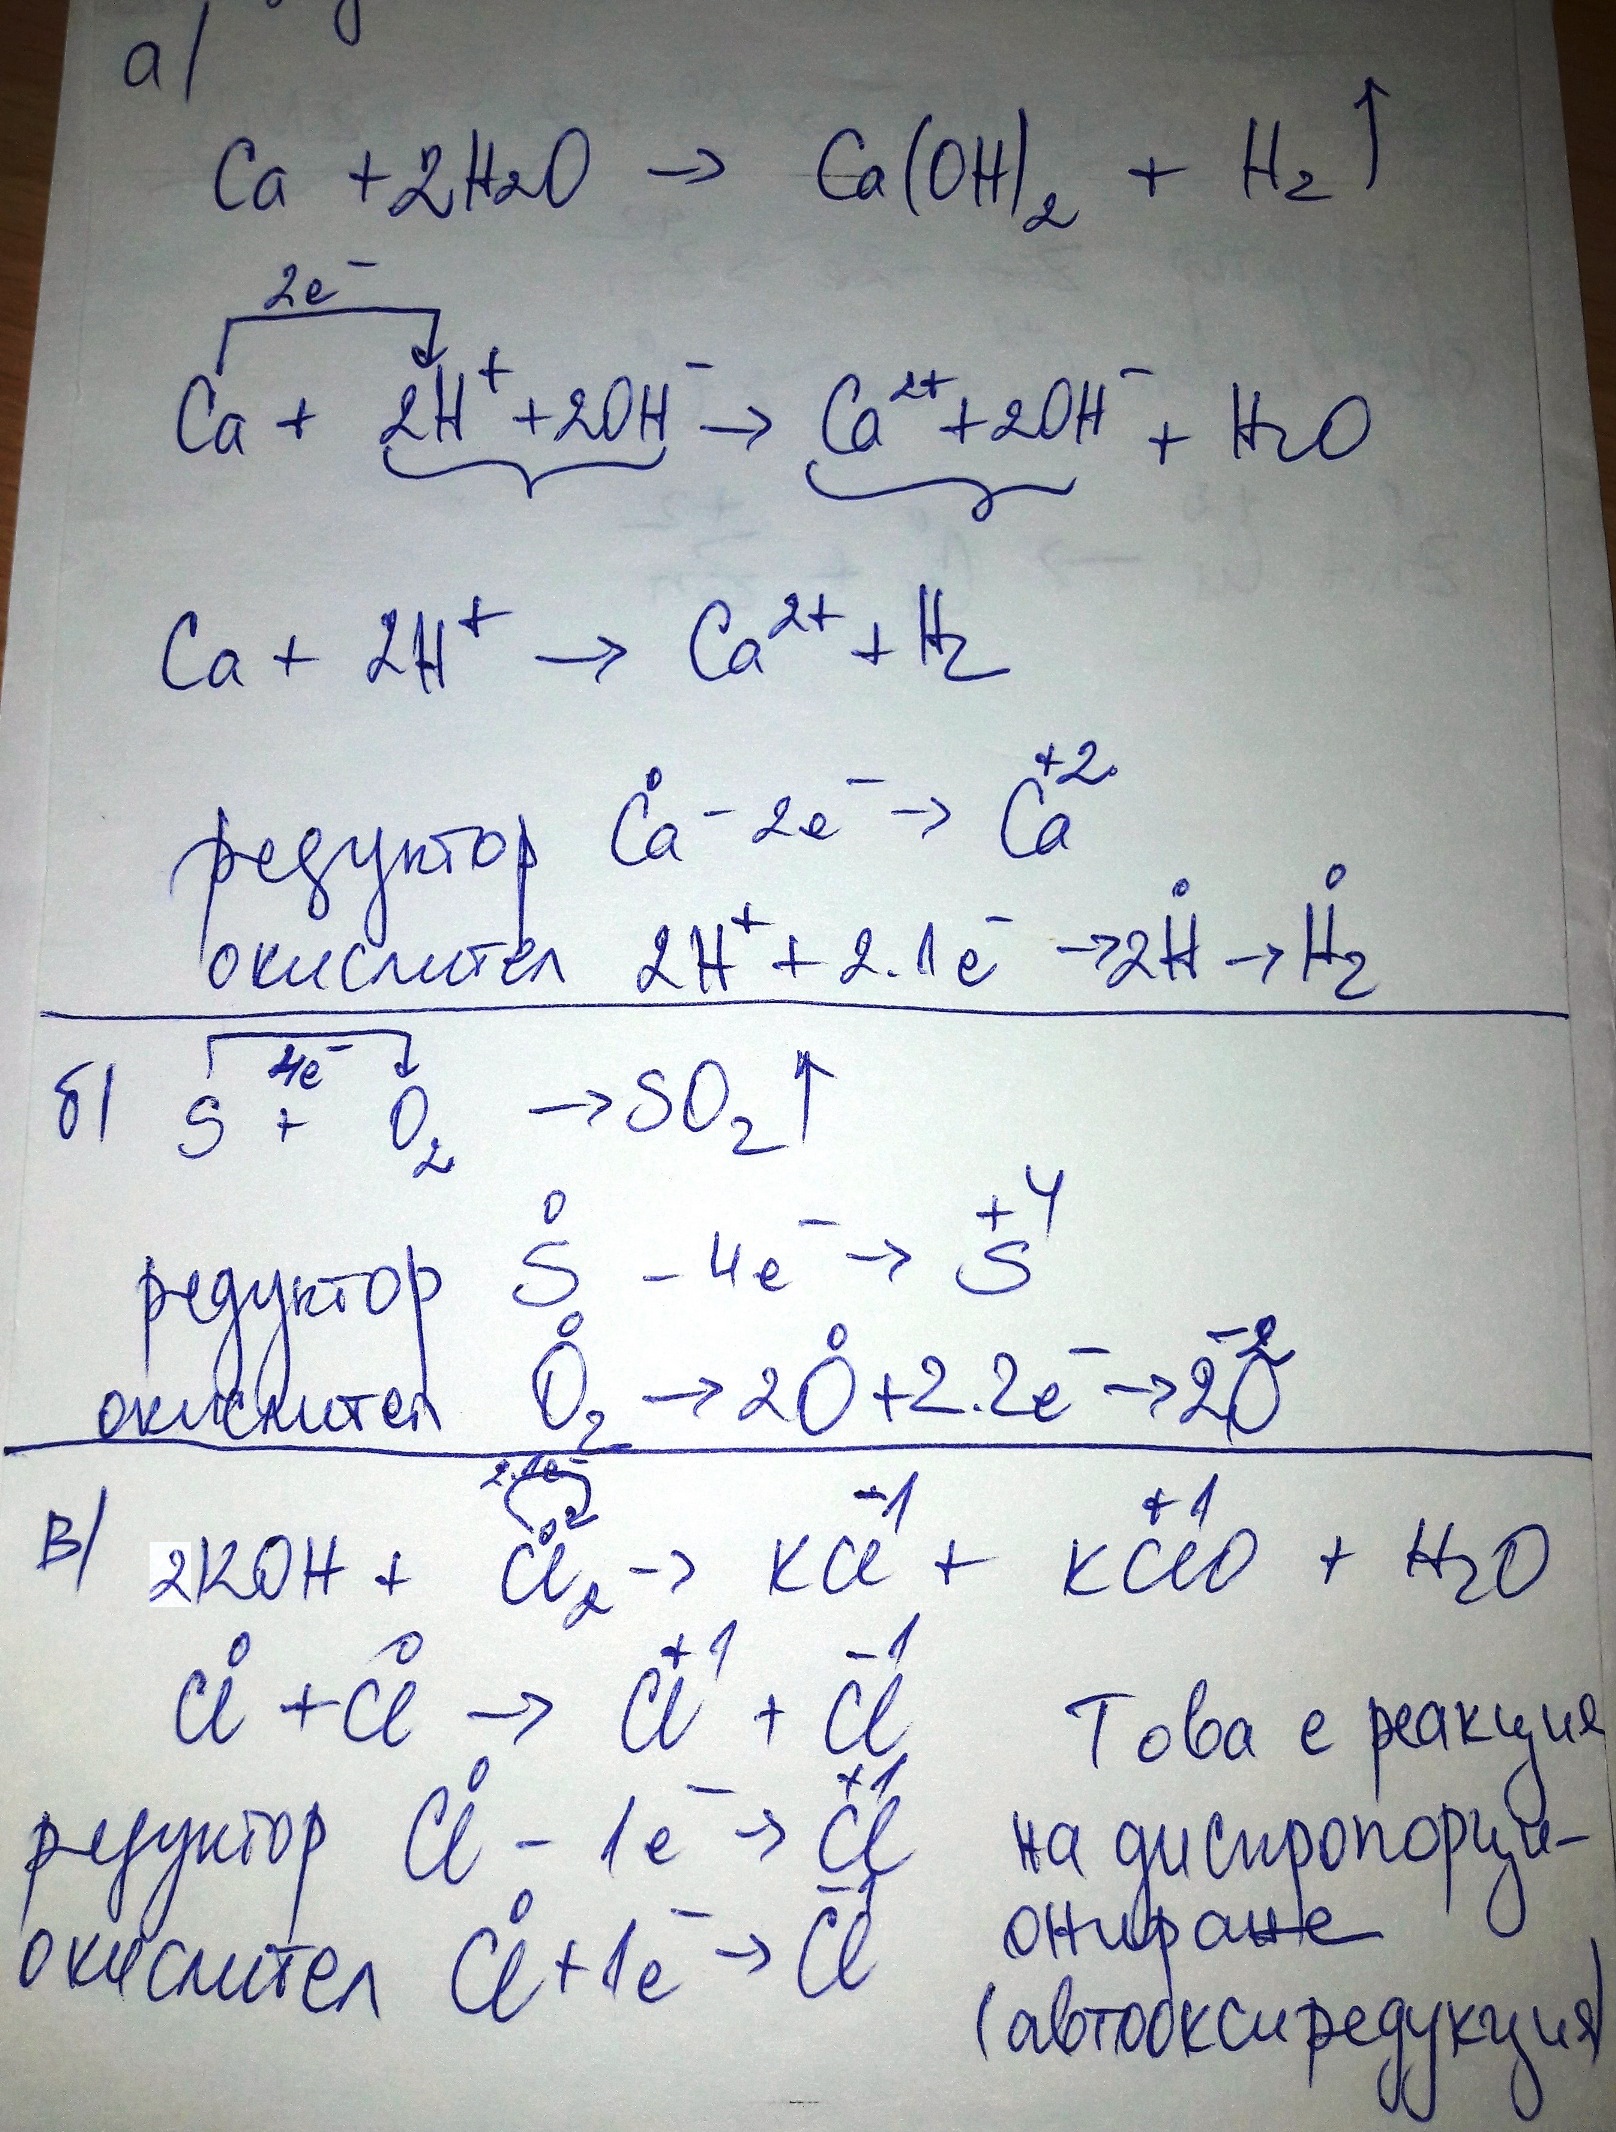 а/
Ca + 2H2O → Ca(OH)₂ + H₂↑
2e⁻
Ca + 2H⁺ + 2OH⁻ → Ca²⁺ + 2OH⁻ + H₂O
Ca + 2H⁺ → Ca²⁺ + H₂
редуктор Ca⁰ - 2e⁻ → Ca⁺²
окислител 2H⁺ + 2.1e⁻ → 2H⁰ → H₂⁰
4e⁻
б/ S + O₂ → SO₂↑
редуктор S⁰ - 4e⁻ → S⁺⁴
окислител O₂⁰ → 2O⁰ + 2.2e⁻ → 2O⁻²
2.1e⁻
в/ 2KOH + Cl₂⁰ → KCl⁻¹ + KCl⁺¹O + H₂O
Cl⁰ + Cl⁰ → Cl⁺¹ + Cl⁻¹
редуктор Cl⁰ - 1e⁻ → Cl⁺¹
окислител Cl⁰ + 1e⁻ → Cl⁻¹
Това е реакция
на диспропорци-
ониране
(автооксиредукция)